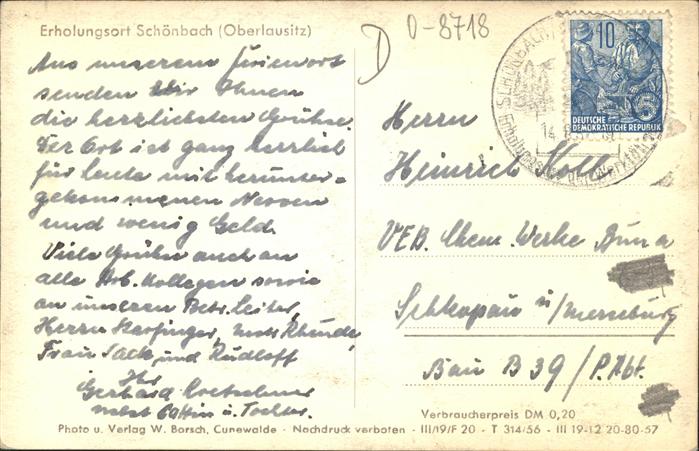 Erholungsort Schönbach (Oberlausitz)
D 0-8718
Aus unserem Ferienort
senden wir Ihnen
die herzlichsten Grüße.
Der Ort ist ganz herrlich
für Leute mit herunter-
gekommenen Nerven
und wenig Geld.
Viele Grüße auch an
alle Arb. Kollegen sowie
an unseren Betr. Leiter,
Herrn
Frau Sack und Rudloff
Ihr
Gerhard
nebst Gattin u. Tochter.
10
DEUTSCHE
DEMOKRATISCHE REPUBLIK
SCHÖNBACH
14
Herrn
Heinrich
VEB. Chem. Werke Buna
Schkopau ü/Merseburg
Bau B 39 / P. Abt.
Verbraucherpreis DM 0,20
Photo u. Verlag W. Borsch, Cunewalde · Nachdruck verboten · III/19/F 20 · T 314/56 · III 19-12 20-80-57